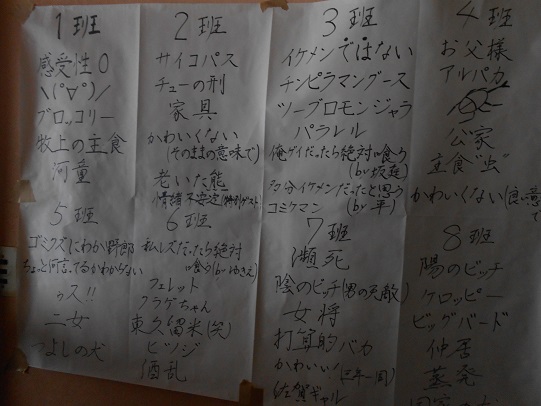 1班
感受性0
\(°∀°)/
ブロッコリー
牧上の主食
河童
2班
サイコパス
チューの刑
家具
かわいくない
(そのままの意味で)
老いた熊
情緒不安定(特別ゲスト)
3班
イケメンではない
チンピラマングース
ツーブロモンジャラ
パラレル
俺ゲイだったら絶対"食う
(by 坂庭)
多分イケメンだったと思う
コミケマン (by 平)
4班
お父様
アルパカ
公家
主食"虫"
かわいくない(良い意味
で
5班
ゴミクズにわか野郎
ちょっと何言ってるかわからない
ゥス!!
二女
つよしの犬
6班
私レズだったら絶対
"食う(by ゆきえ)
フェレット
クラゲちゃん
東久留米(笑)
ヒツジ
酒乱
7班
瀕死
陰のビッチ(男の天敵)
女将
打算的バカ
かわいい!
佐賀ギャル
8班
陽のビッチ
ケロッピー
ビッグバード
仲居
蒸発